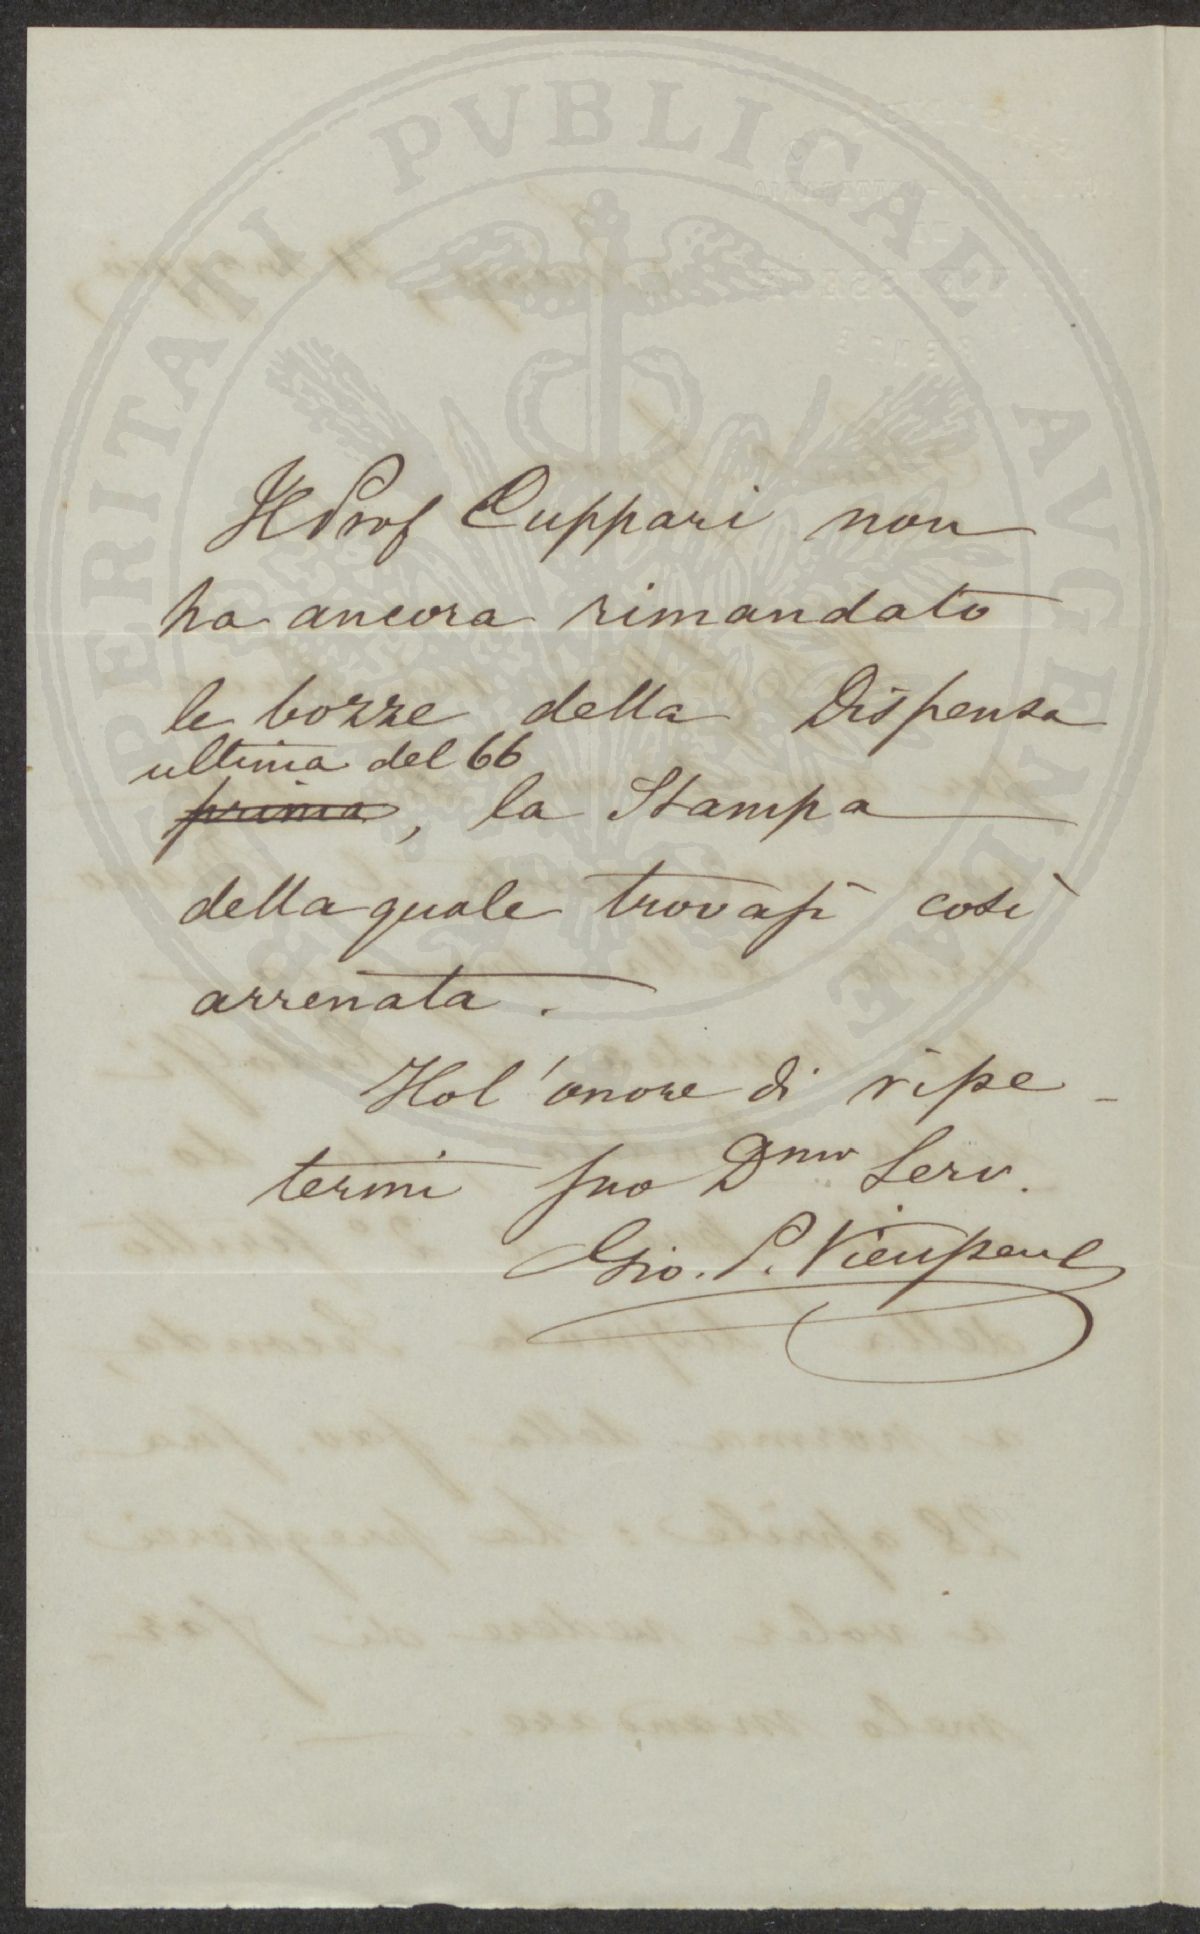 PROSPERITATI PVBLICAE AVGENDAE
Il Prof Cuppari non
ha ancora rimandato
le bozze della Dispensa
ultima del 66
prima, la Stampa
della quale trovasi così
arrenata.
Ho l'onore di ripe-
termi suo Dmo Serv.
Gio. P. Vieusseux